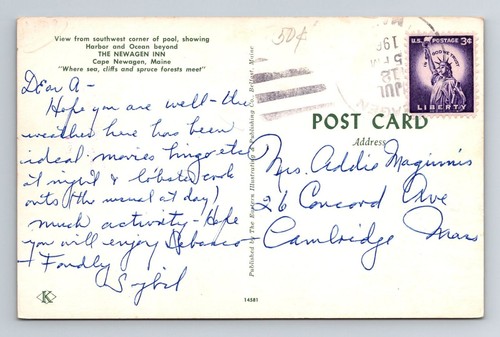 View from southwest corner of pool, showing
Harbor and Ocean beyond
THE NEWAGEN INN
Cape Newagen, Maine
"Where sea, cliffs and spruce forests meet"
50¢
U.S. POSTAGE 3¢
IN GOD WE TRUST
LIBERTY
JUL
18
5 PM
196
AGEN
POST CARD
Address
Dear A-
Hope you are well - the
weather here has been
ideal - movies bingo etc
at night & lobster cook
outs (the usual at day)
much activity - Hope
you will enjoy
Fondly
Sybil
Mrs. Addie Maginnis
26 Concord Ave
Cambridge Mass
Published by The Eastern Illustrating & Publishing Co., Belfast, Maine
K
14581